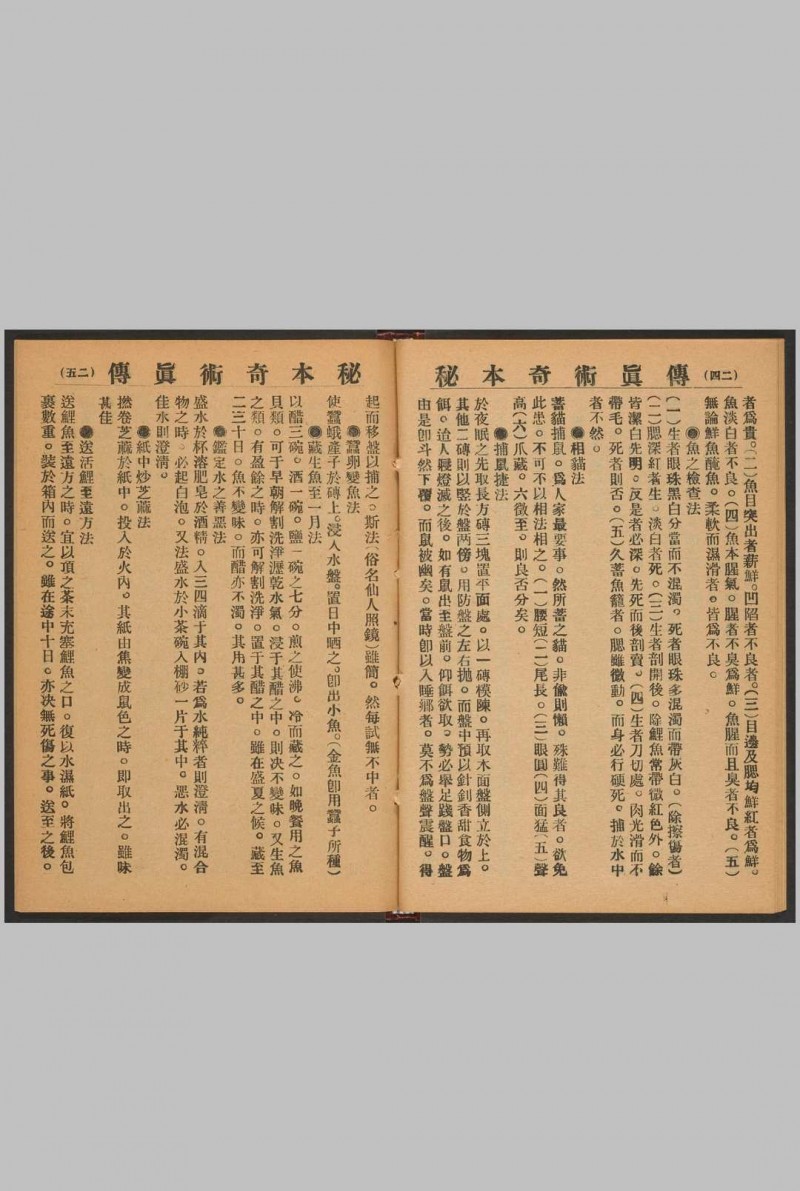 秘本奇術眞傳
(二四)
者爲貴。(二)魚目突出者新鮮。凹陷者不良者。(三)目邊及腮均鮮紅者爲鮮。
魚淡白者不良。(四)魚本腥氣。腥者不臭爲鮮。魚腥而且臭者不良。(五)
無論鮮魚醃魚。柔軟而濕滑者。皆爲不良。
●魚之檢查法
(一)生者眼珠黑白分當而不混濁。死者眼珠多混濁而帶灰白。(除擦傷者)
(二)腮深紅者生。淡白者死。(三)生者剖開後。除鯉魚常帶微紅色外。餘
皆潔白先明。反是者必深。先死而後剖賣。(四)生者刀切處。肉光滑而不
帶毛。死者則否。(五)久蓄魚籠者。腮雖微動。而身必行硬死。捕於水中
者不然。
●相貓法
蓄貓捕鼠。爲人家最要事。然所蓄之貓。非傖則懶。殊難得其良者。欲免
此患。不可不以相法相之。(一)腰短(二)尾長。(三)眼圓(四)面猛(五)聲
高(六)爪藏。六徵至。則良否分矣。
●捕鼠捷法
於夜眠之先取長方磚三塊置平面處。以一磚橫陳。再取木面盤側立於上。
其他二磚則以竪於盤两傍。用防盤之左右拋。而盤中預以針釗香甜食物爲
餌。迨人寢燈滅之後。如有鼠出至盤前。仰餌欲取。勢必舉足踐盤口。盤
由是卽斗然下覆。而鼠被幽矣。當時卽以入睡鄉者。莫不爲盤聲震醒。得
秘本奇術眞傳
(二五)
起而移盤以捕之。斯法(俗名仙人照鏡)雖簡。然每試無不中者。
●蠶卵變魚法
使蠶蛾產子於磚上。浸人水盤。置日中晒之。卽出小魚。(金魚卽用蠶子所種)
●藏生魚至一月法
以醋三碗。酒一碗。鹽一碗之七分。煎之使沸。冷而藏之。如晚餐用之魚
貝類。可于早朝解割洗淨瀝乾水氣。浸于其醋之中。則决不變味。又生魚
之類。有盈餘之時。亦可解割洗淨。置于其醋之中。雖在盛夏之候。藏至
二三十日。魚不變味。而醋亦不濁。其用甚多。
●鑑定水之善惡法
盛水於杯溶肥皂於酒精。入三四滴于其內。若爲水純粹者則澄淸。有混合
物之時。必起白泡。又法盛水於小茶碗入棚砂一片于其中。惡水必混濁。
佳水則澄淸。
●紙中炒芝蔴法
撚卷芝蔴於紙中。投入於火內。其紙由焦變成鼠色之時。卽取出之。雖味
甚佳
●送活鯉至遠方法
送鯉魚至遠方之時。宜以頂之茶末充塞鯉魚之口。復以水濕紙。將鯉魚包
裹數重。裝於箱內而送之。雖在途中十日。亦决無死傷之事。送至之後。